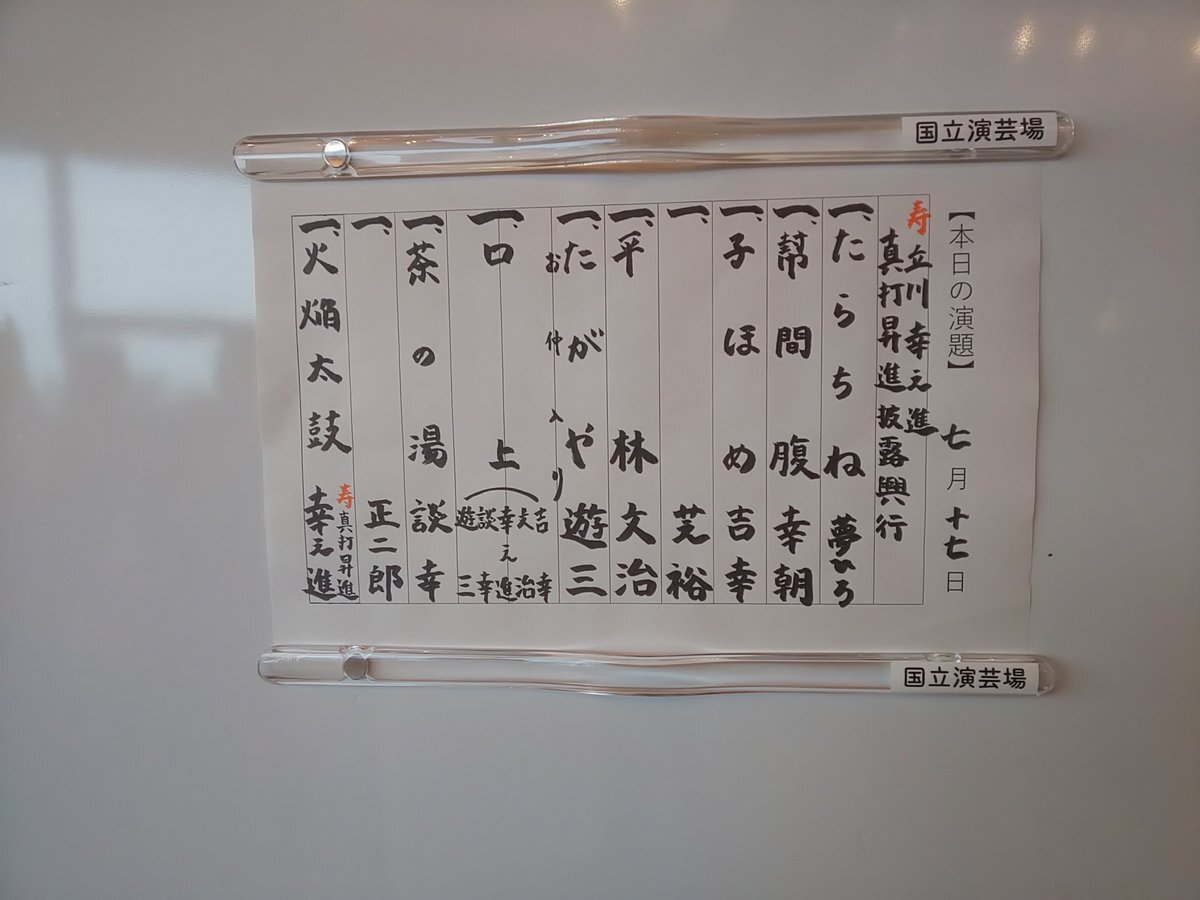 国立演芸場
【本日の演題】 七月十七日
寿 立川幸之進
真打昇進披露興行
一、たらちね 夢ひろ
一、幇間腹 幸朝
一、子ほめ 吉幸
一、 芝裕
一、平林 文治
一、たがや 遊三
お仲入り
一、口上(吉幸 文治 幸之進 談幸 遊三
一、茶の湯 談幸
一、 正二郎
寿 真打昇進
一、火焔太鼓 幸之進
国立演芸場